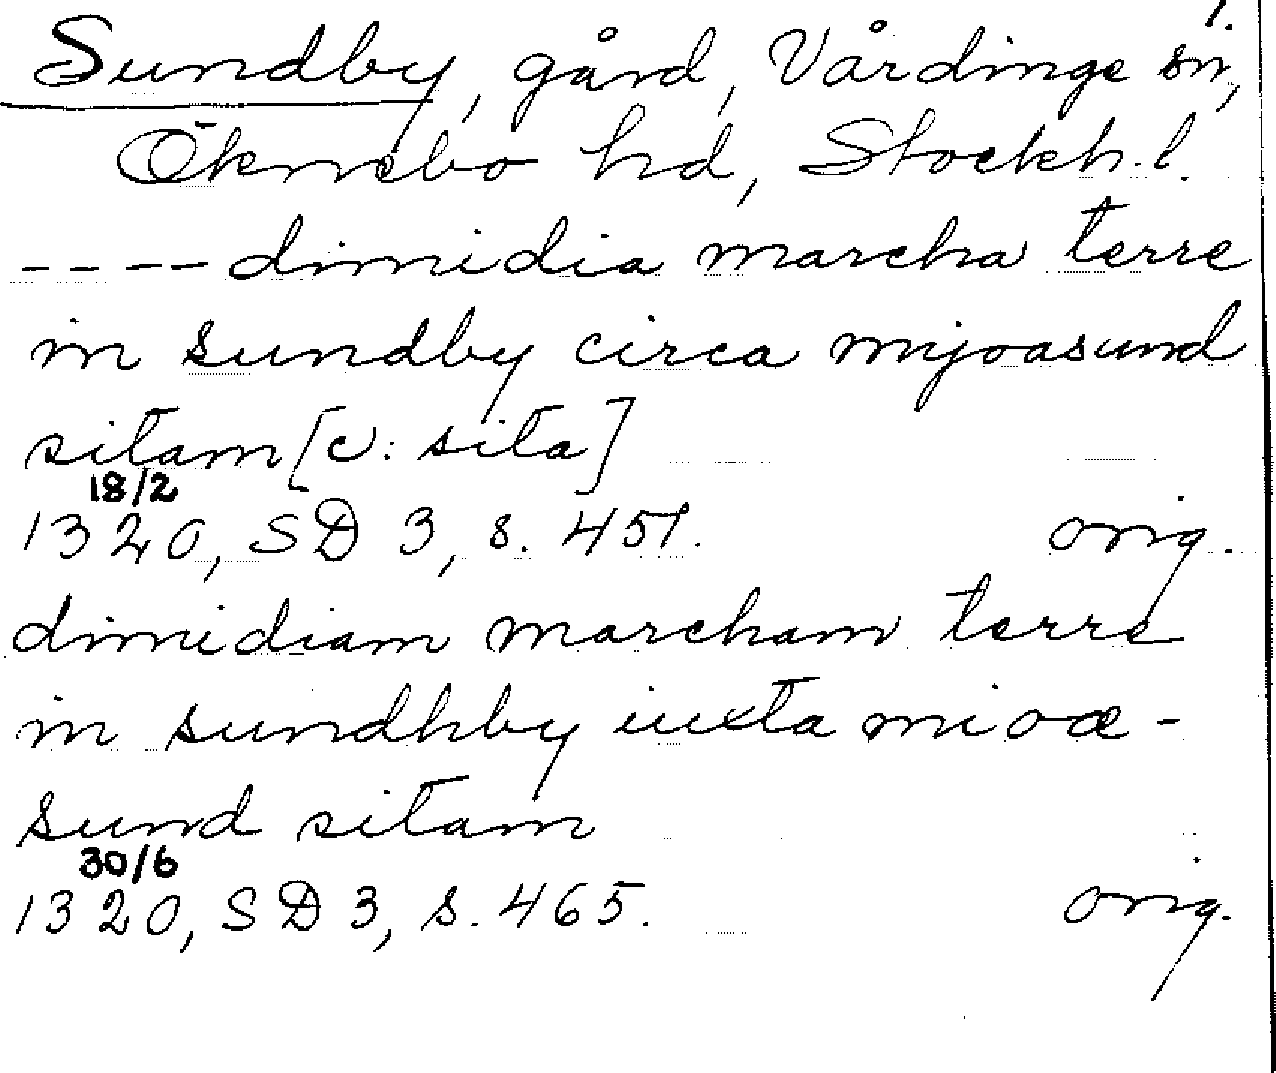 1.
Sundby, gård, Vårdinge sn,
Öknebo hd, Stockh. l.
---- dimidia marcha terre
in sundby circa mijoasund
sitam [ɔ: sita]
18/2
1320, SD 3, s. 451. orig.
dimidiam marcham terre
in sundhby iuxta mioæ-
sund sitam
30/6
1320, SD 3, s. 465. orig.